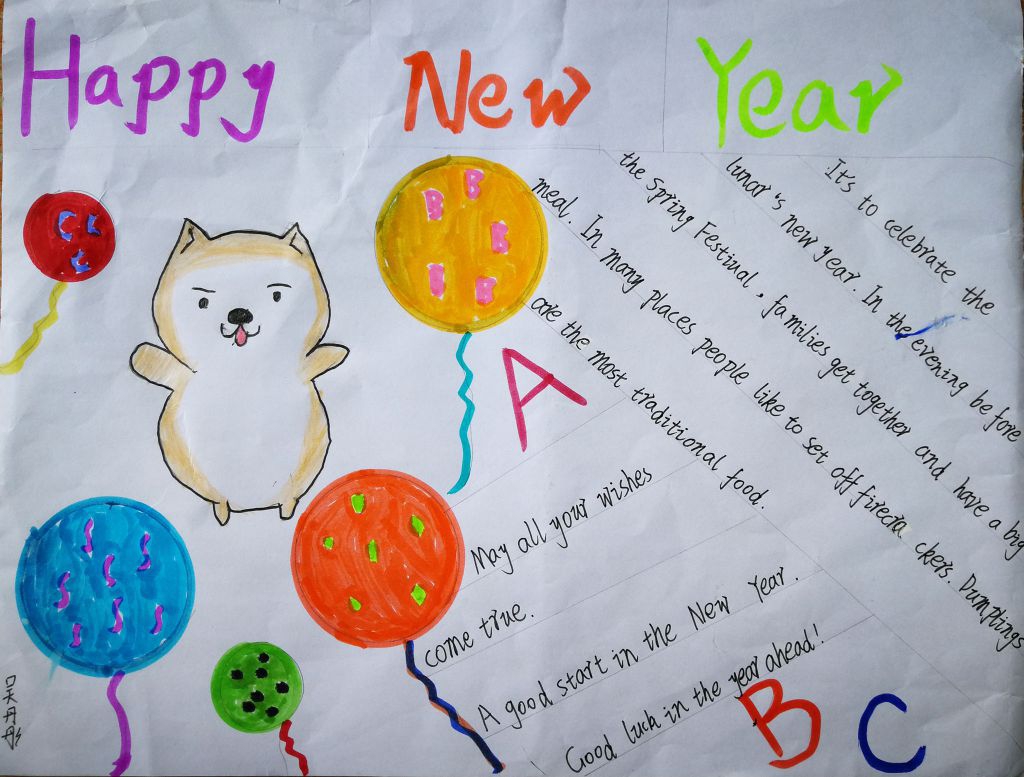 Happy New Year
It's to celebrate the
lunar's new year. In the evening before
the Spring Festival, families get together and have a big
meal. In many places people like to set off firecra ckers. Dumplings
are the most traditional food.
A
May all your wishes
come true.
A good start in the New Year.
Good luck in the year ahead!
B C
吴丹彤